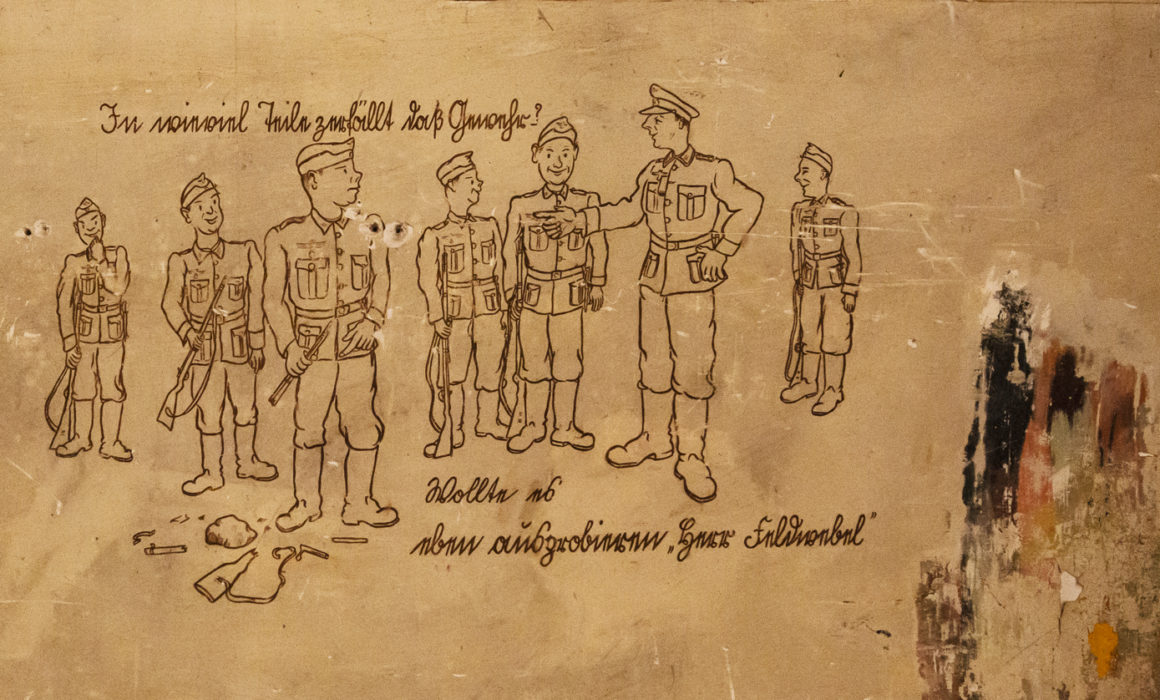 In wieviel Teile zerfällt daß Gewehr?
Wollte es
eben ausprobieren „Herr Feldwebel“